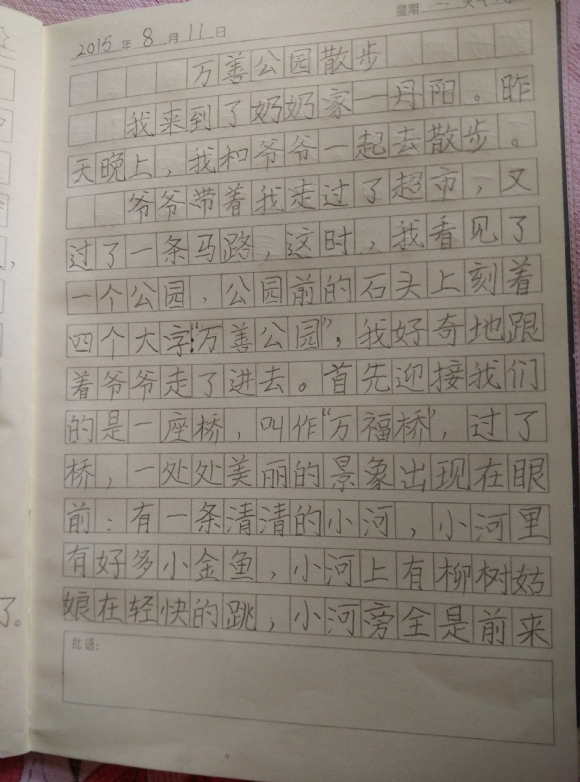 2015年8月11日 星期
万善公园散步
我来到了奶奶家一丹阳。昨
天晚上，我和爷爷一起去散步。
爷爷带着我走过了超市，又
过了一条马路，这时，我看见了
一个公园，公园前的石头上刻着
四个大字:“万善公园”，我好奇地跟
着爷爷走了进去。首先迎接我们
的是一座桥，叫作“万福桥”，过了
桥，一处处美丽的景象出现在眼
前：有一条清清的小河，小河里
有好多小金鱼，小河上有柳树姑
娘在轻快的跳，小河旁全是前来
批语：
了。